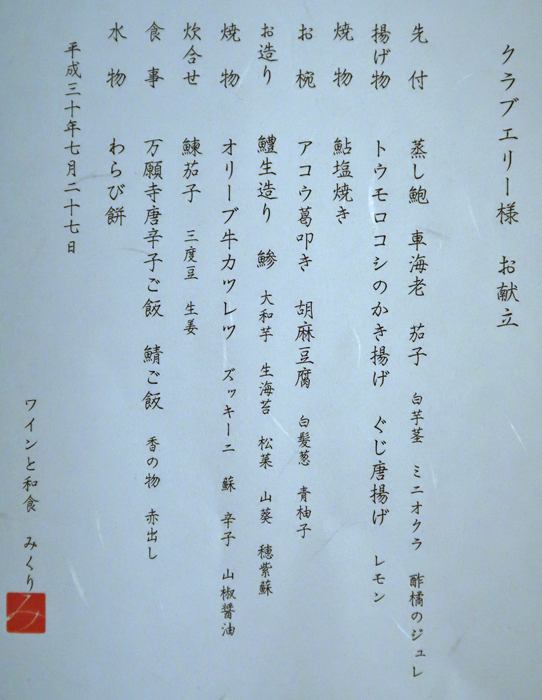 クラブエリー様　お献立
先付　蒸し鮑　車海老　茄子　白芋茎　ミニオクラ　酢橘のジュレ
揚げ物　トウモロコシのかき揚げ　ぐじ唐揚げ　レモン
焼物　鮎塩焼き
お椀　アコウ葛叩き　胡麻豆腐　白髪葱　青柚子
お造り　鱧生造り　鯵　大和芋　生海苔　松菜　山葵　穂紫蘇
焼物　オリーブ牛カツレツ　ズッキーニ　蘇　辛子　山椒醤油
炊合せ　鰊茄子　三度豆　生姜
食事　万願寺唐辛子ご飯　鯖ご飯　香の物　赤出し
水物　わらび餅
平成三十年七月二十七日
ワインと和食　みくり
み